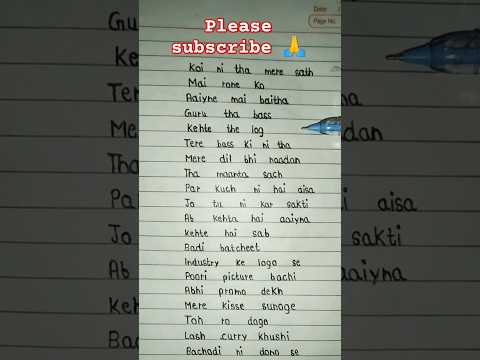 Please
subscribe 🙏
Date
Page No.
Koi ni tha mere sath
Mai rone ko
Aaiyne mai baitha
Guru tha bass
Kehte the log
Tere bass ki ni tha
Mere dil bhi naadan
Tha maanta sach
Par kuch ni hai aisa
Jo tu ni kar sakti
Ab kehta hai aaiyna
Kehte hai sab
Badi batcheet
Industry ke logo se
Poori picture bachi
Abhi promo dekh
Mere kisse sunoge
Toh ro doge
Lash curry khushi
Bachadi ni dono se